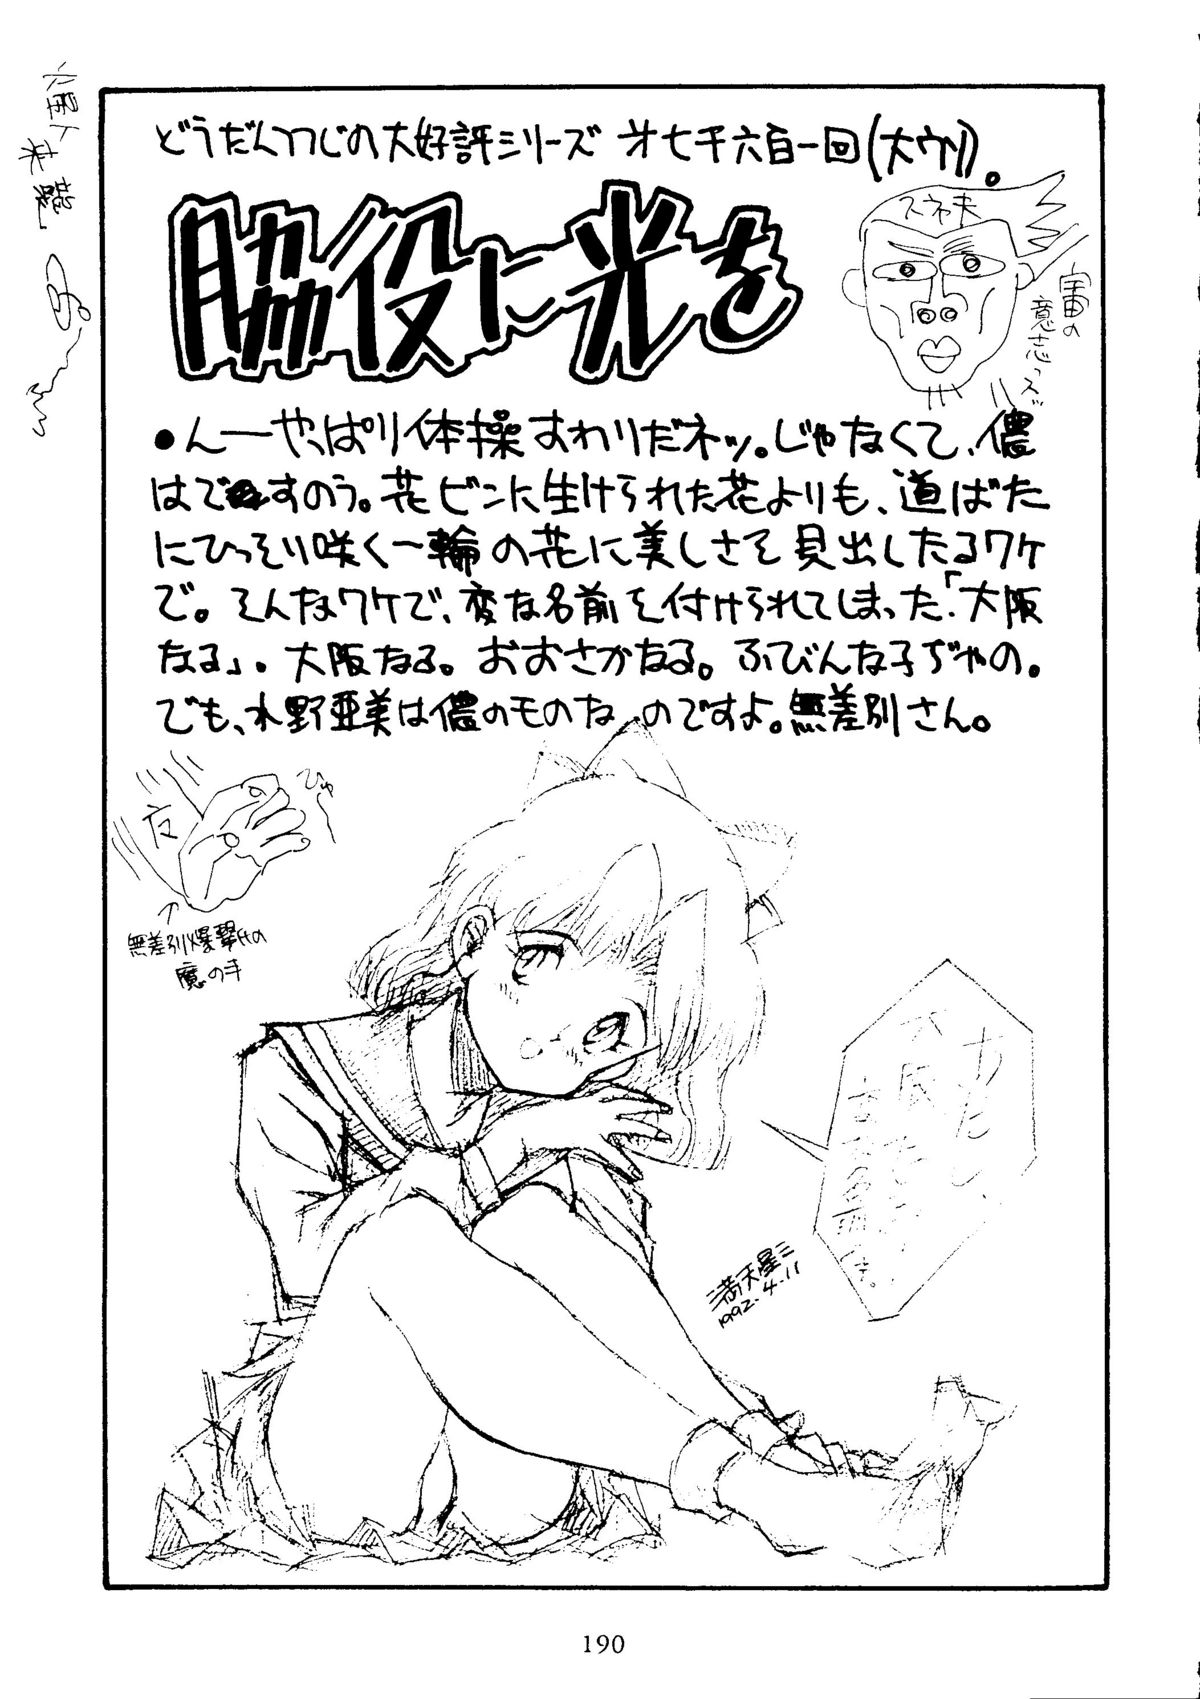 どうだんつつじの大好評シリーズ 才七千六百一回(大ウソ)。
脇役に光を
スネ夫
宇宙の
意志っス
●んーやっぱり体操すわりだネッ。じゃなくて、儂
はですのう。花ビンに生けられた花よりも、道ばた
にひっそり咲く一輪の花に美しさを見出したるワケ
で。そんなワケで、変な名前を付けられてしまった「大阪
なる」。大阪なる。おおさかなる。ふびんな子ぢゃの。
でも、水野亜美は儂のものなのですよ。無差別さん。
ひゅー
無差別爆撃氏の
魔の手
あたし、
大阪なる
満天星三
1992.4.11
190